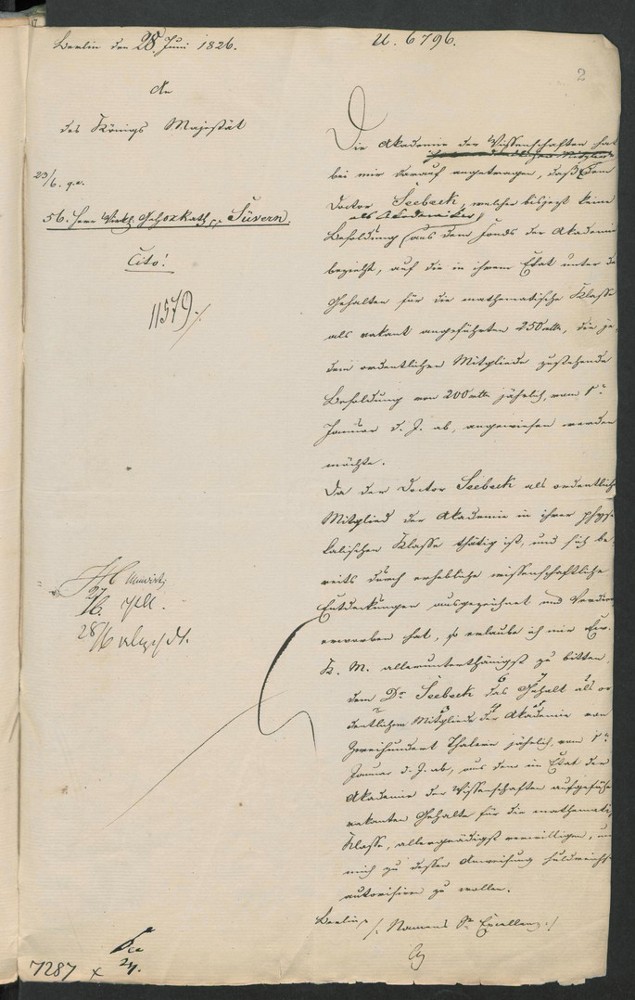 Berlin den 28. Juni 1826.
U. 6796.
2
An
des Königs Majestät
23/6.
56. Herr Wirkl. Süvern.
Cito!
11579.
27/6.
28/6
7287 x
24.
Die Akademie der Wissenschaften hat
bei mir darauf angetragen, daß dem
Doctor Seebeck, welcher bisher keine
als Akademiker
Besoldung aus dem Fonds der Akademie
bezieht, auf die in ihrem Etat unter den
Gehalten für die mathematische Klasse
als vakant angeführten 250 rtlr, die je
dem ordentlichen Mitgliede zustehende
Besoldung von 200 rtlr jährlich, vom 1n
Januar d. J. ab, angewiesen werden
möchte.
Da der Doctor Seebeck als ordentlich
Mitglied der Akademie in ihrer physi
kalischen Klasse thätig ist, und sich be
reits durch erhebliche wissenschaftliche
Entdeckungen ausgezeichnet und Verdien
erworben hat, so erlaube ich mir Ew.
K. M. allerunterthänigst zu bitten,
dem Dr Seebeck das Gehalt als or
dentlichem Mitgliede der Akademie von
Zweihundert Thalern jährlich, vom 1n
Januar d. J. ab, aus dem im Etat der
Akademie der Wissenschaften aufgeführ
vakanten Gehalte für die mathemati
Klasse, allergnädigst zu bewilligen, und
mich zu dessen Anweisung huldreichst
autorisiren zu wollen.
Berlin /: Namens Sr Excellenz :/